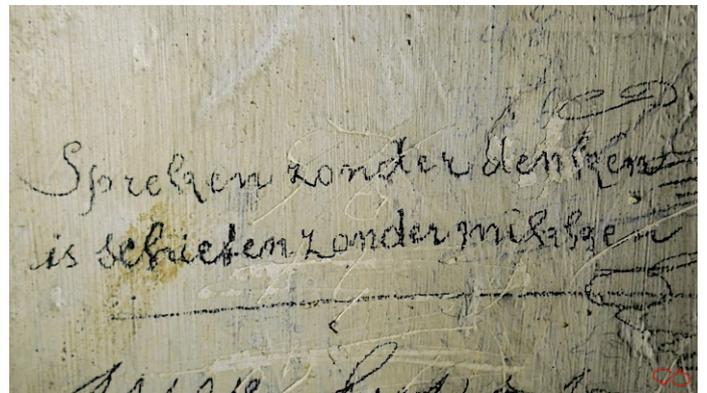 Spreken zonder denken
is schieten zonder mikken